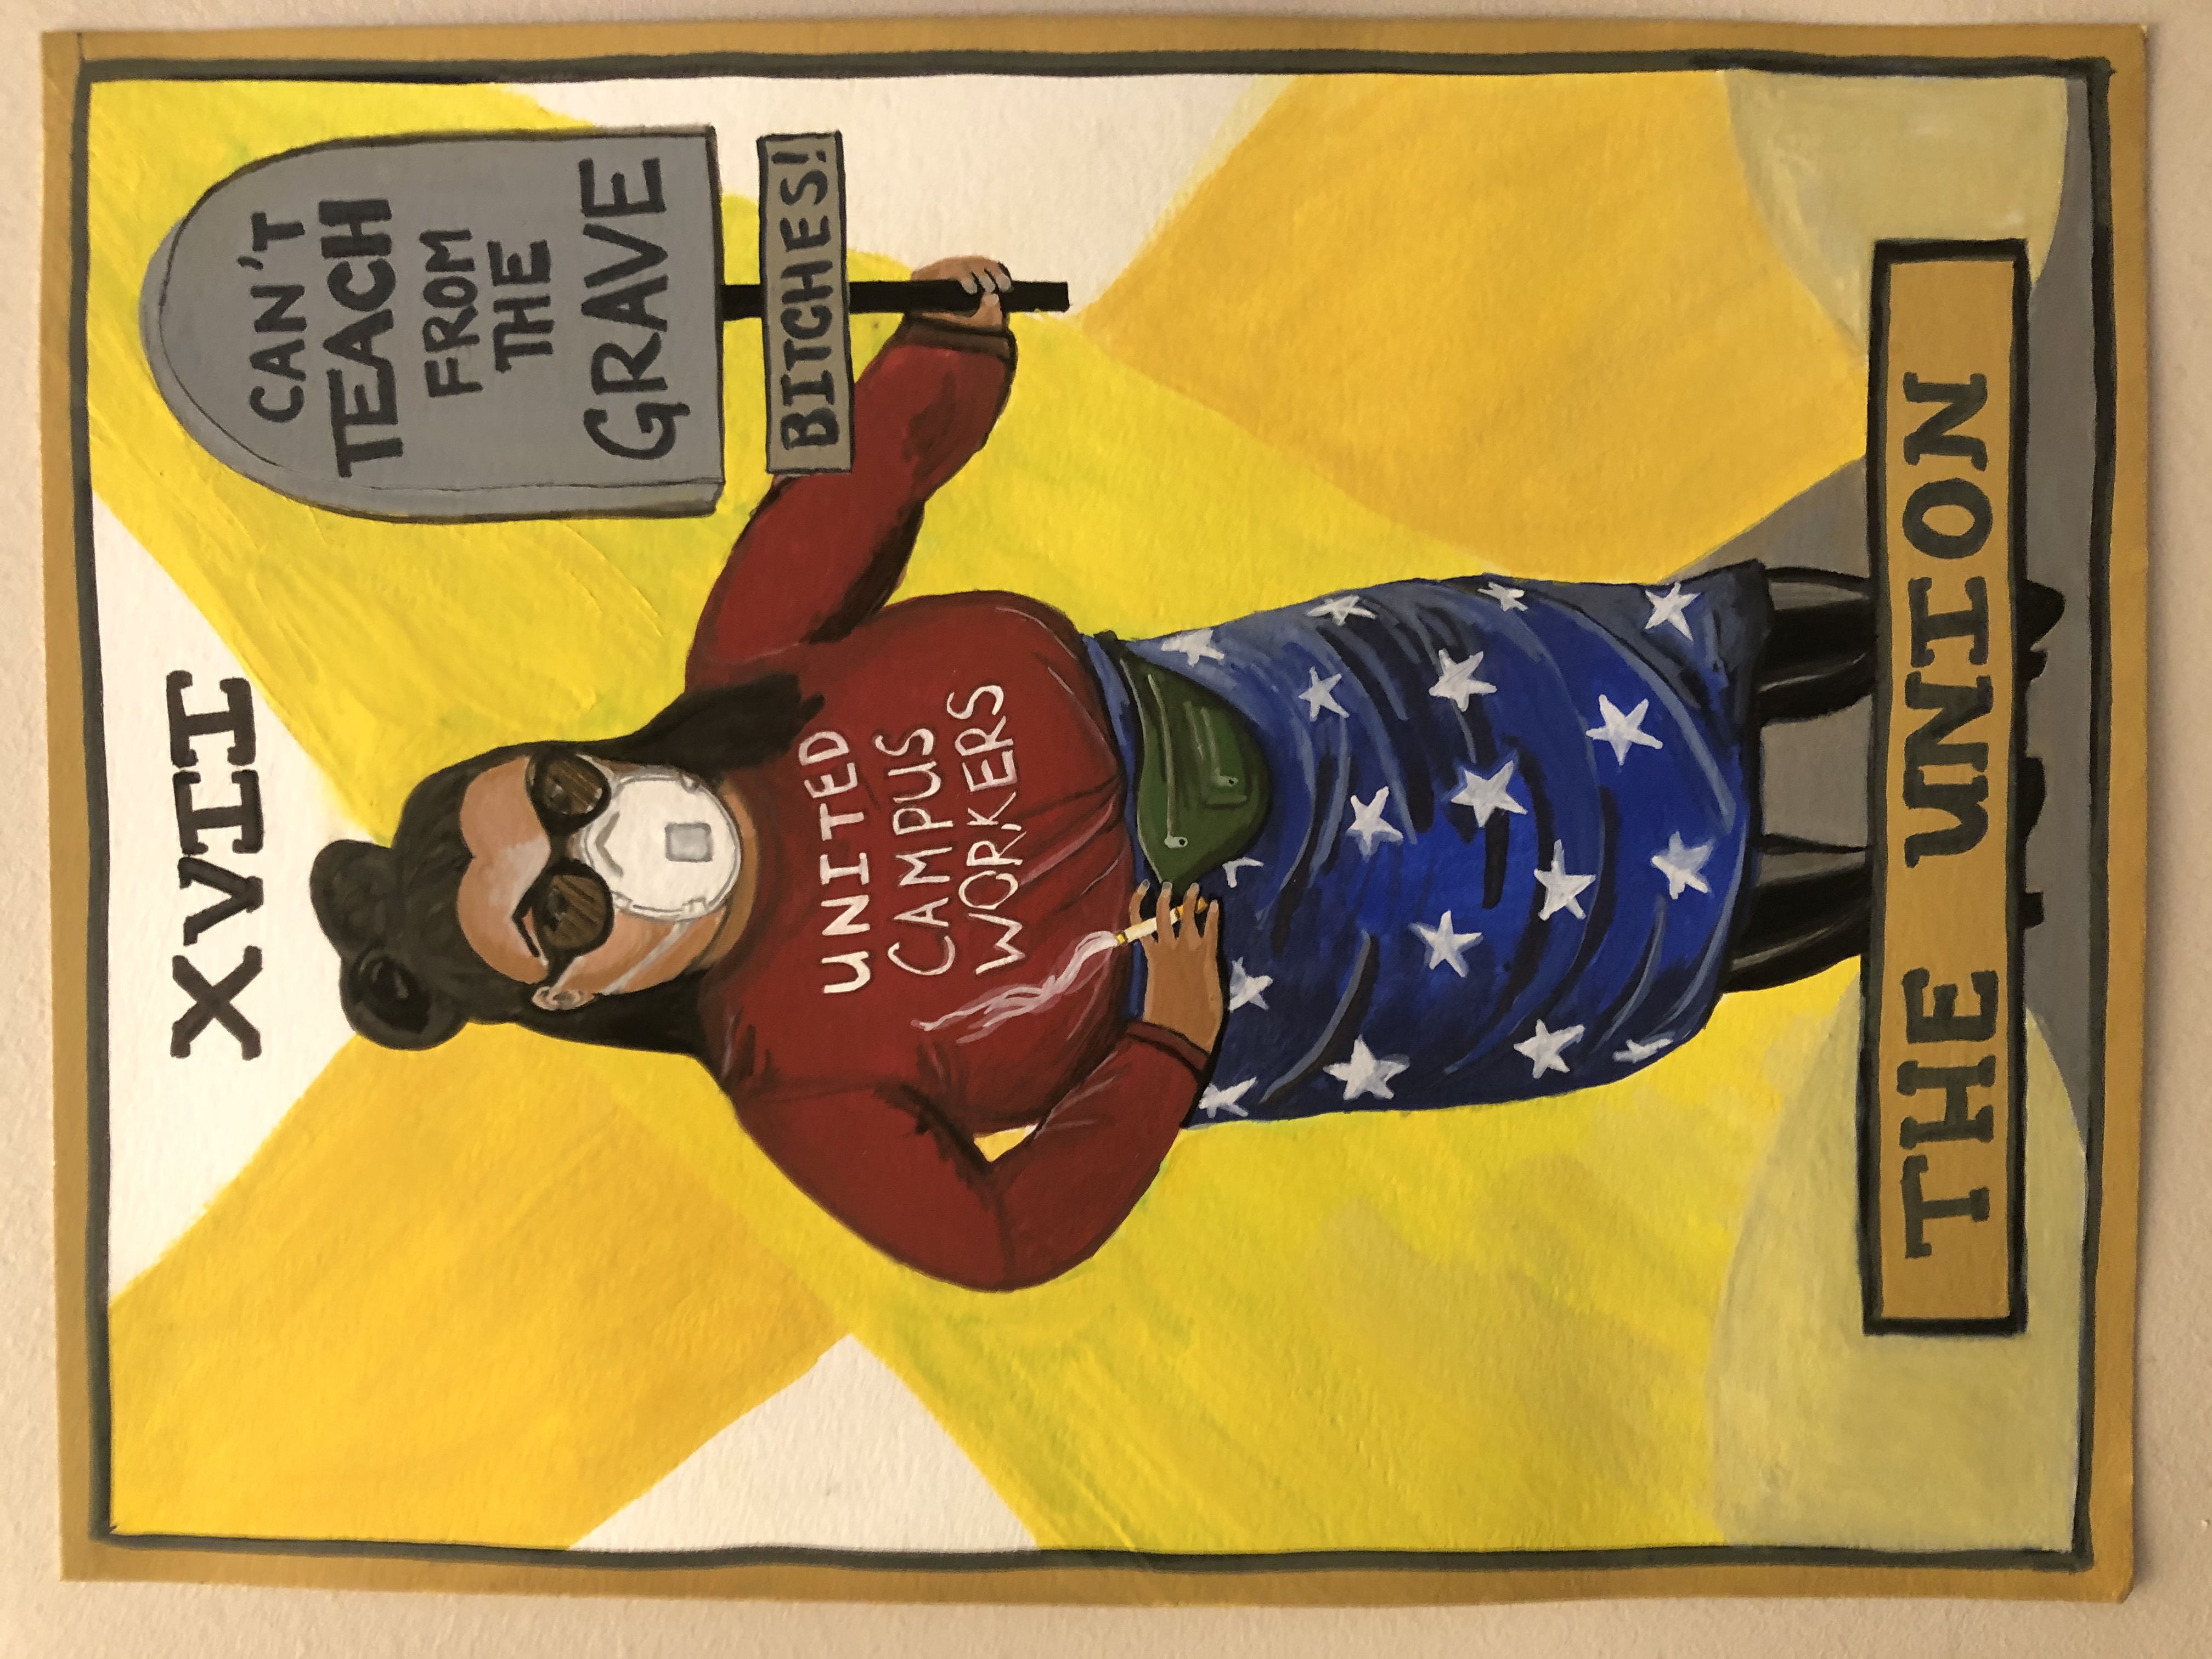 XVII
CAN'T
TEACH
FROM
THE
GRAVE
BITCHES!
UNITED
CAMPUS
WORKERS
THE UNION